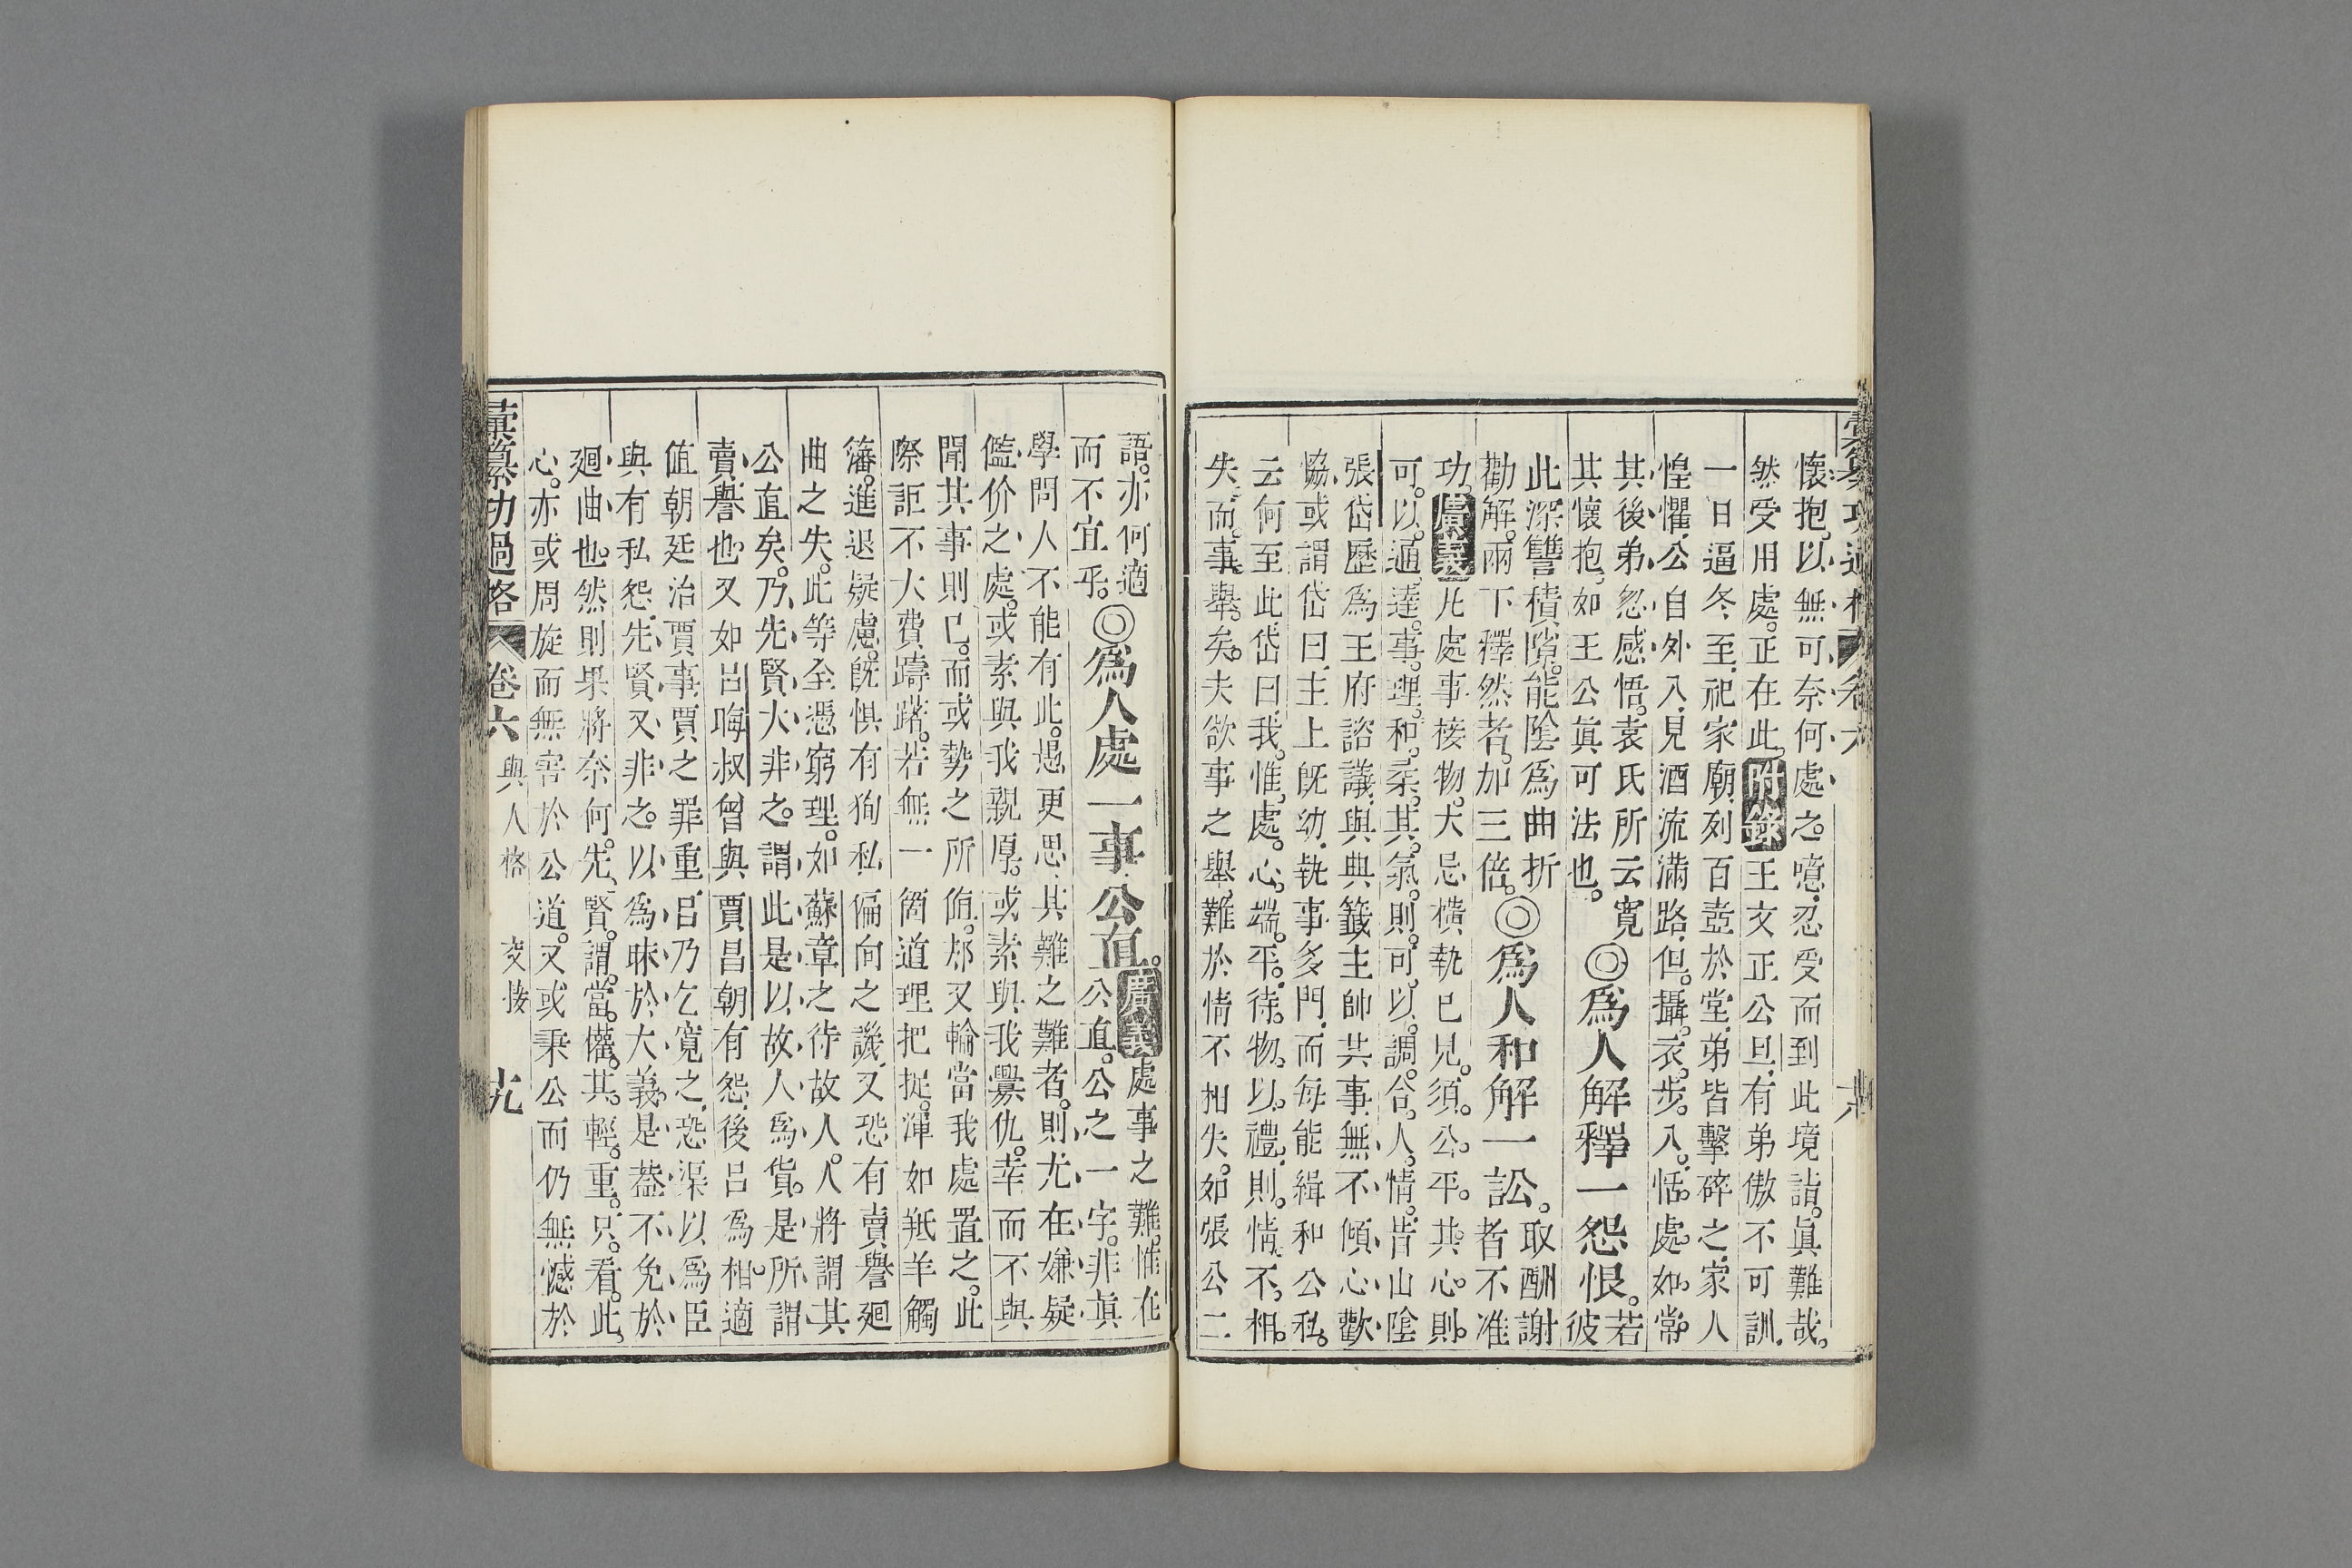 懷抱。以無可奈何處之。噫。忍受而到此境詣。眞難哉。
然受用處。正在此。附錄王文正公旦。有弟傲不可訓。
一日逼冬至。祀家廟。列百壺於堂。弟皆擊碎之。家人
惶懼。公自外入。見酒流滿路。但攝衣步入。恬處如常。
其後弟忽感悟。袁氏所云寬
其懷抱。如王公眞可法也。
◎爲人解釋一怨恨。
若
彼
此深讐積隙。能陰爲曲折
勸解。兩下釋然者。加三倍。
◎爲人和解一訟。
取酬謝
者不准
功。廣義凡處事接物。大忌橫執已見。須公平其心。則
可以通達事理。和柔其氣。則可以調合人情。昔山陰
張岱歷爲王府諮議。與典籤主帥共事。無不傾心歡
恊。或謂岱曰。主上旣幼。執事多門。而每能緝和公私。
云何至此。岱曰。我惟處心端平。待物以禮。則情不相
失。而事舉矣。夫欲事之舉。難於情不相失。如張公二
語。亦何適
而不宜乎。
◎爲人處一事公直。
廣義處事之難。惟在
公直。公之一字。非眞
學問人不能有此。愚更思其難之難者。則尤在嫌疑
尷尬之處。或素與我親厚。或素與我釁仇。幸而不與
聞其事則已。而或勢之所値。却又輪當我處置之。此
際詎不大費躊躇。若無一箇道理把捉。渾如羝羊觸
藩。進退疑慮。旣惧有狥私偏向之譏。又恐有賣譽廻
曲之失。此等全憑窮理。如蘇章之待故人。人將謂其
公直矣。乃先賢大非之。謂此是以故人爲貨。是所謂
賣譽也。又如呂晦叔曾與賈昌朝有怨。後呂爲相。適
値朝廷治賈事。賈之罪重。呂乃乞寬之。恐渠以爲臣
與有私怨。先賢又非之。以爲昧於大義。是葢不免於
廻曲也。然則果將奈何。先賢謂當權其輕重。只看此
心。亦或周旋而無害於公道。又或秉公而仍無憾於
彙纂功過格 卷六 與人格 交接 十九